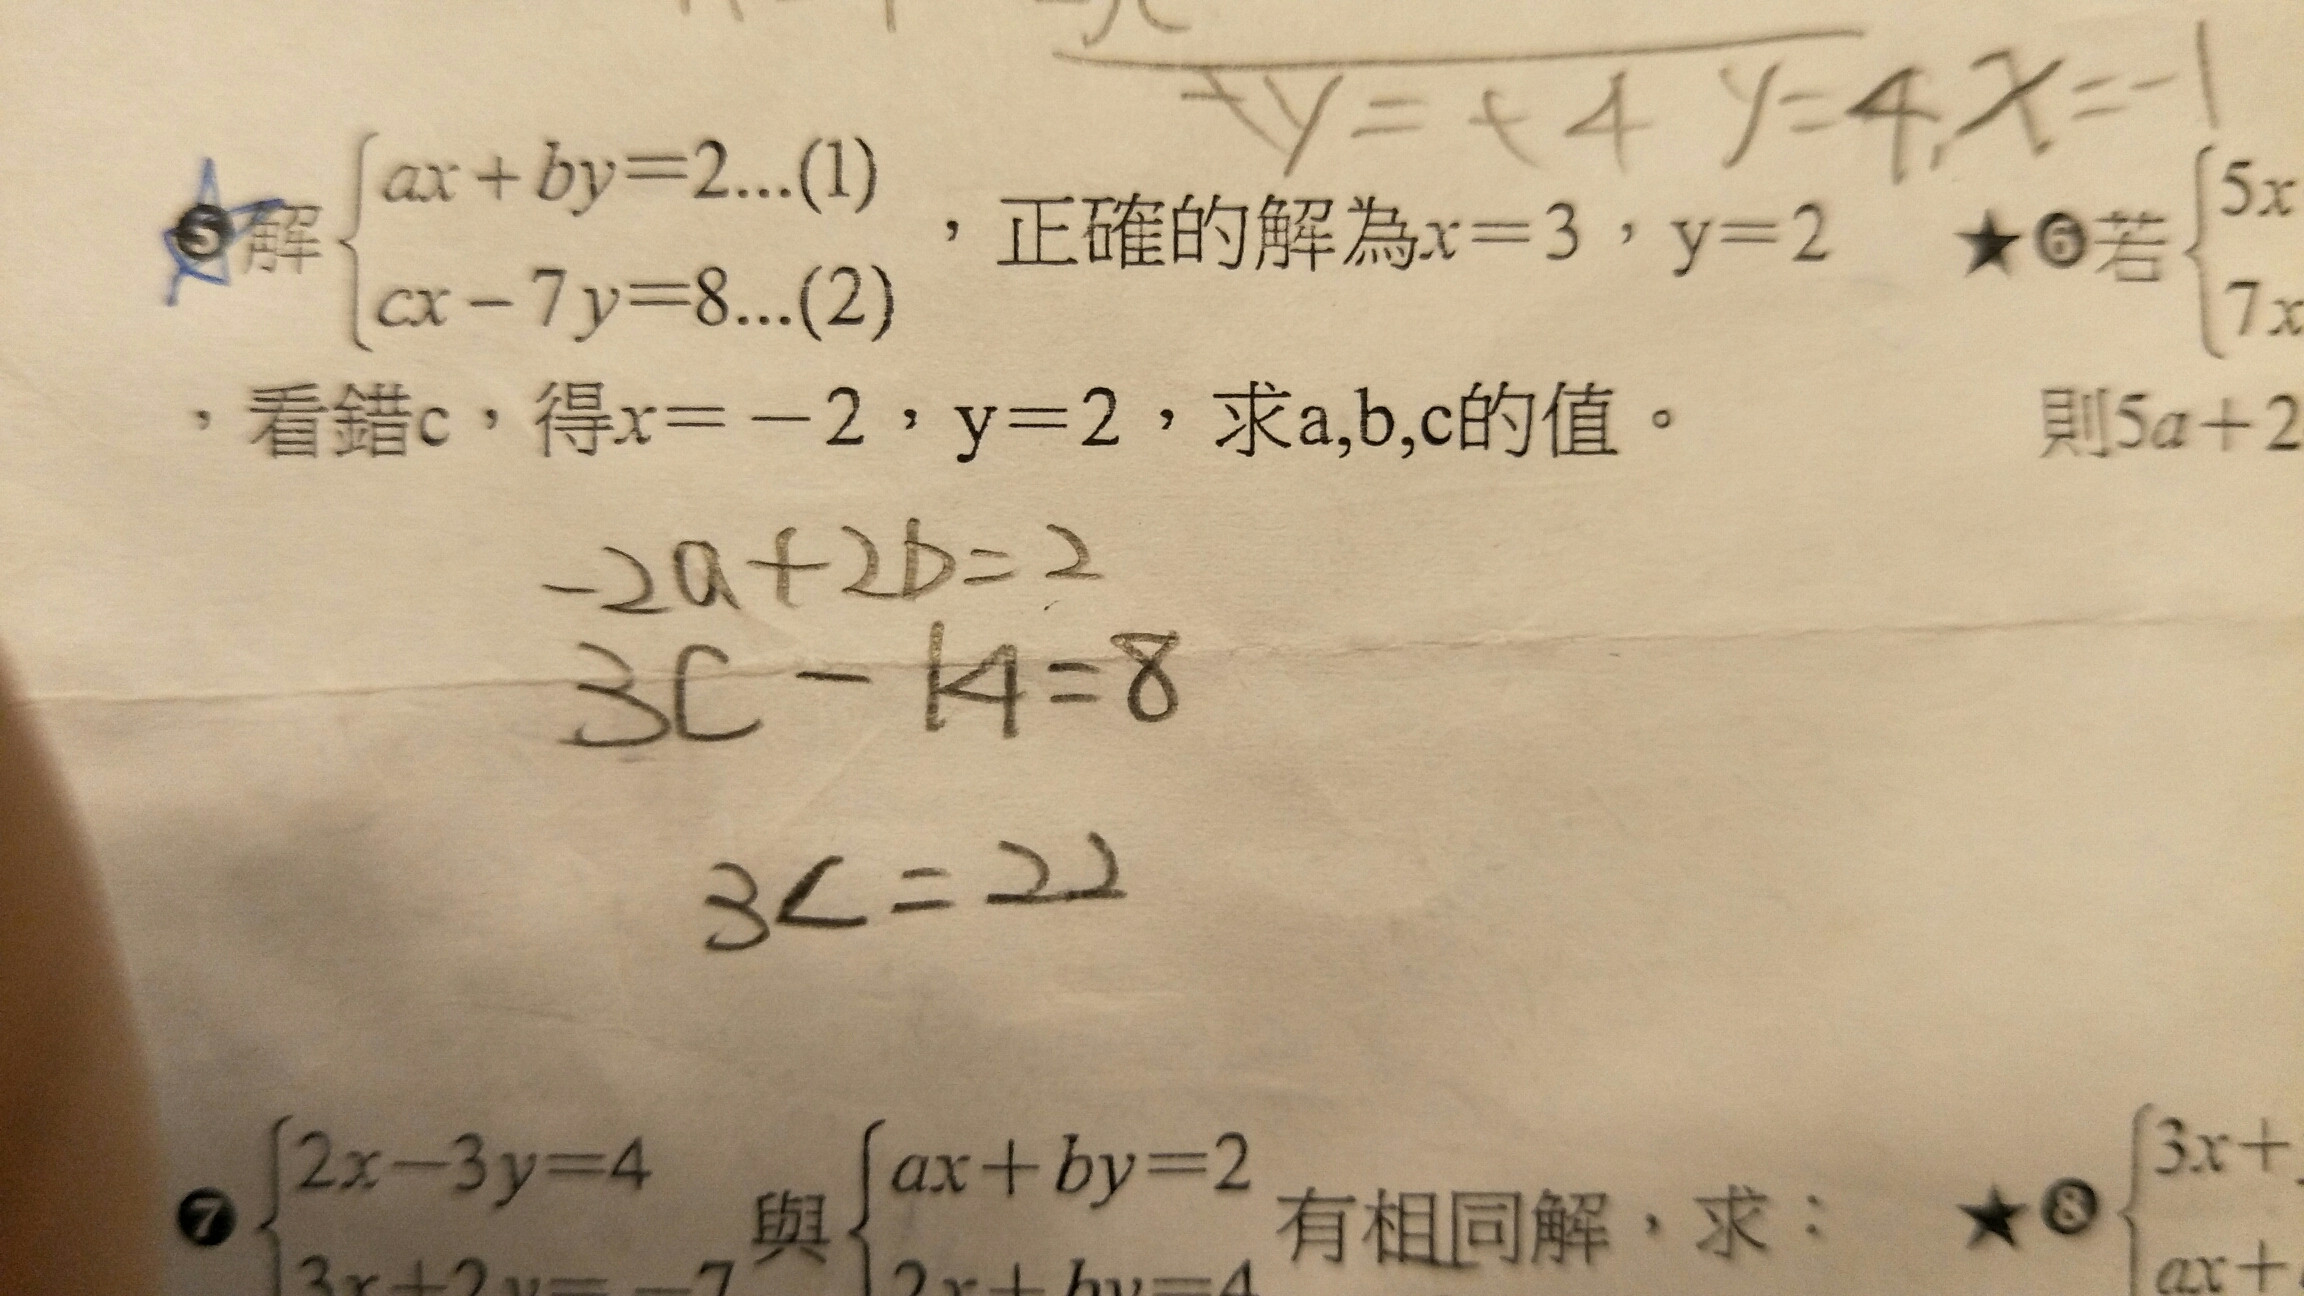 +y=+4 y=4,x=-1
❺解{ax+by=2...(1)
cx-7y=8...(2)
，正確的解為x=3，y=2
，看錯c，得x=-2，y=2，求a,b,c的值。
-2a+2b=2
3C-14=8
3C=22
★❻若{5x
7x
則5a+2
❼{2x-3y=4
3x+2y=-7
與{ax+by=2
2x+by=4
有相同解，求：
★❽{3x+
ax+